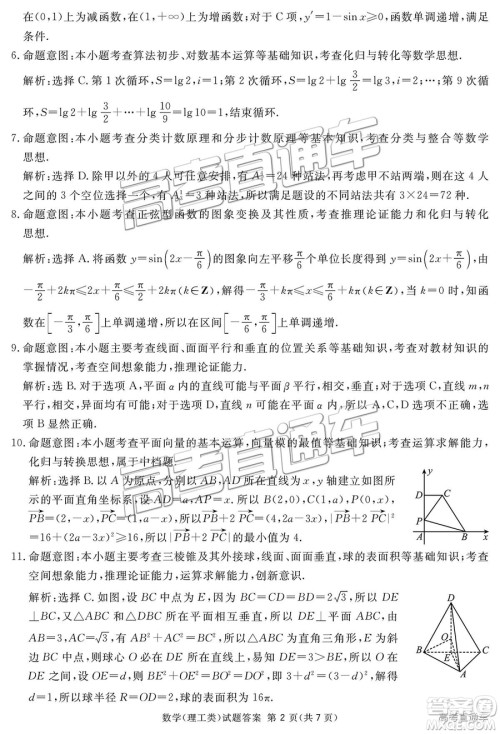 在(0,1)上为减函数,在(1,+∞)上为增函数;对于 C 项,y′=1-sinx≥0,函数单调递增,满足
条件.
6. 命题意图:本小题考查算法初步、对数基本运算等基础知识,考查化归与转化等数学思想.
解析:选择 C. 第 1 次循环,S=lg2,i=1;第 2 次循环,S=lg2+lg3/2=lg3,i=2;…;第 9 次循
环,S=lg2+lg3/2+…+lg10/9=1,结束循环.
7. 命题意图:本小题考查分类计数原理和分步计数原理等基本知识,考查分类与整合等数学
思想.
解析:选择 D. 除甲以外的 4 人可任意安排,有 A₄⁴=24 种站法,再考虑甲不站两端,则在这 4 人
之间的 3 个空位选择一个,有 A₃¹=3种站法,所以满足题设的不同站法共有 3×24=72 种.
8. 命题意图:本小题考查正弦型函数的图象变换及其性质,考查推理论证能力和化归与转化
思想.
解析:选择 A. 将函数 y=sin(2x-π/6)的图象向左平移π/6个单位长度得到 y=sin(2x+π/6),由
-π/2+2kπ≤2x+π/6≤π/2+2kπ(k∈Z),解得-π/3+kπ≤x≤π/6+kπ(k∈Z). 当 k=0 时,知函
数在[-π/3,π/6]上单调递增,所以在区间[-π/6,π/6]上单调递增.
9. 命题意图:本小题考查线面、面面平行和垂直的位置关系等基础知识,考查对教材知识的
掌握情况,考查空间想象能力,推理论证能力.
解析:选 B. 对于选项 A,平面 α 内的直线可能与平面 β 平行,对于选项 C,显然不正确,选项
B 显然正确.
10. 命题意图:本小题考查平面向量的基本运算,向量模的最值等基础知识;考查运算求解能力,
化归与转换思想,属于中档题.
解析:选择 B. 以 A 为原点,分别以 AB,AD 为 x 轴、y 轴建立如图所
示的平面直角坐标系,设 AD=a,AP=x. 所以 B(2,0),C(1,a),P(0,x),
PB=(2,-x),PC=(1,a-x),所以PB+2PC=(4,2a-3x),|PB+2PC|²
=16+(2a-3x)²≥16,所以|PB+2PC|的最小值为 4.
y
D
C
P
A
B
x
11. 命题意图:本小题主要考查三棱锥及其外接球,线面、面面垂直,球的表面积等基础知识;考查
空间想象能力,推理论证能力,运算求解能力,创新意识.
解析:选择 C. 如图,设 BC 中点为 E,因为 DB=DC=BC=2√3,所以 DE
⊥BC,又△ABC 和△DBC 所在平面相互垂直,所以 DE⊥平面 ABC,由
AB=3,AC=√3,有 AB²+AC²=BC²,所以△ABC 为直角三角形,E 为
BC 中点,则球心 O 必在 DE 上,设 OE=d,所以球半径 R=
易知 DE=3>BC/2,所以
d=1,所以球半径 R=OD=2,球的表面积为 16π.
D
O
B
E
C
A
数学(理工类)试题答案 第 2 页(共 7 页)
高考直通车